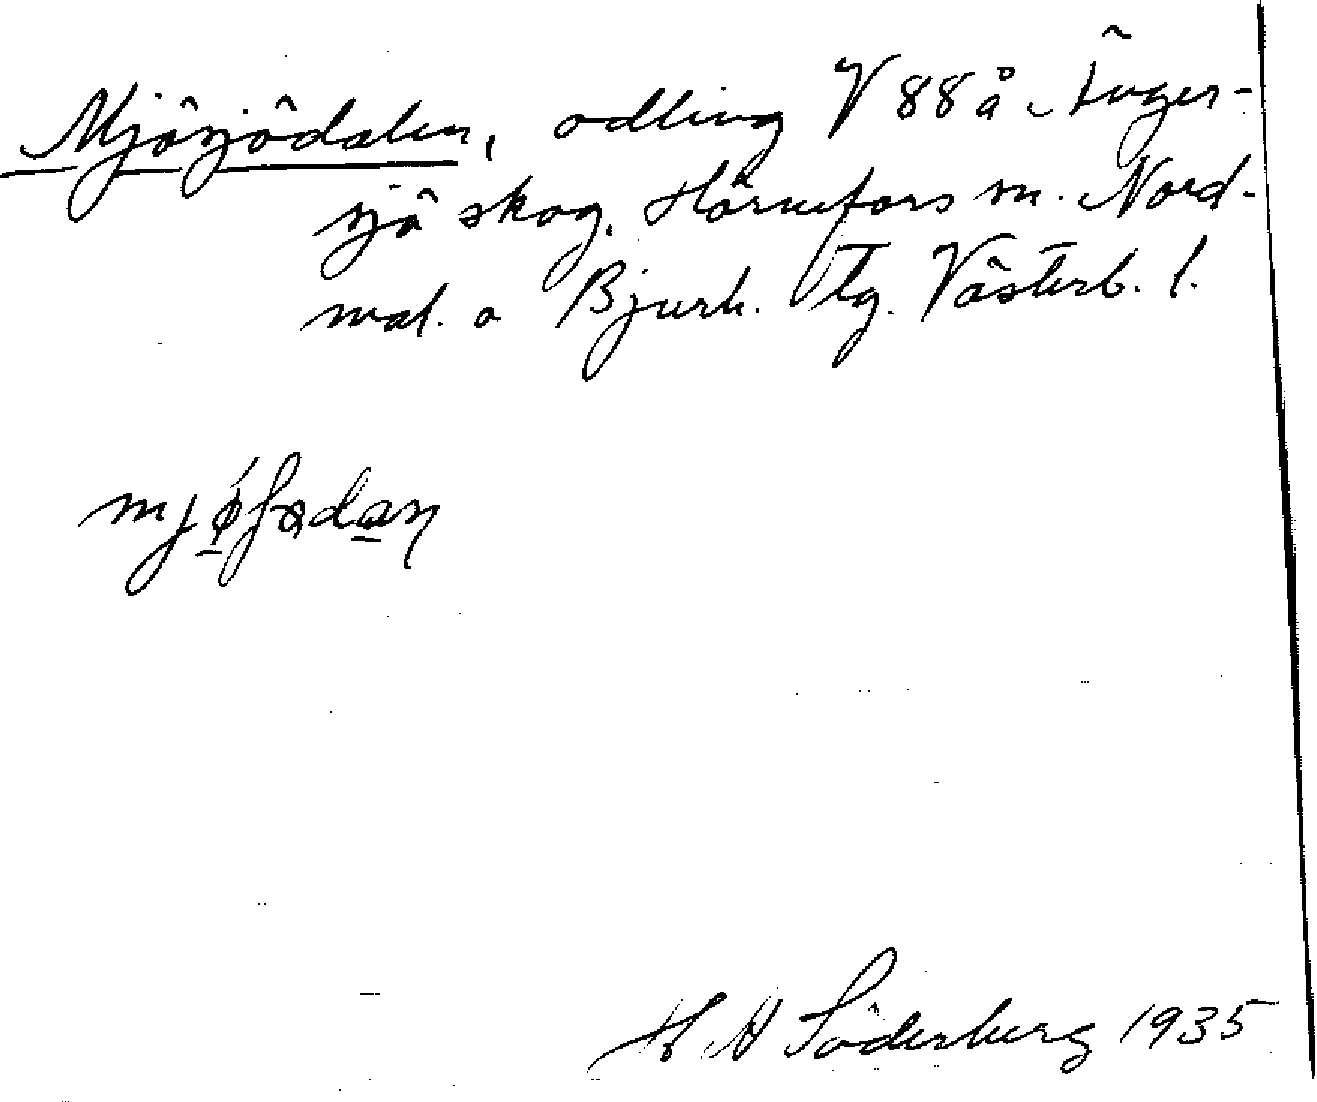 Mjösjödalen, odling V 88 å Ånger-
sjö skog, Hörnefors sn. Nord-
mal. o Bjurh. tg. Västerb. l.
H A Söderberg 1935